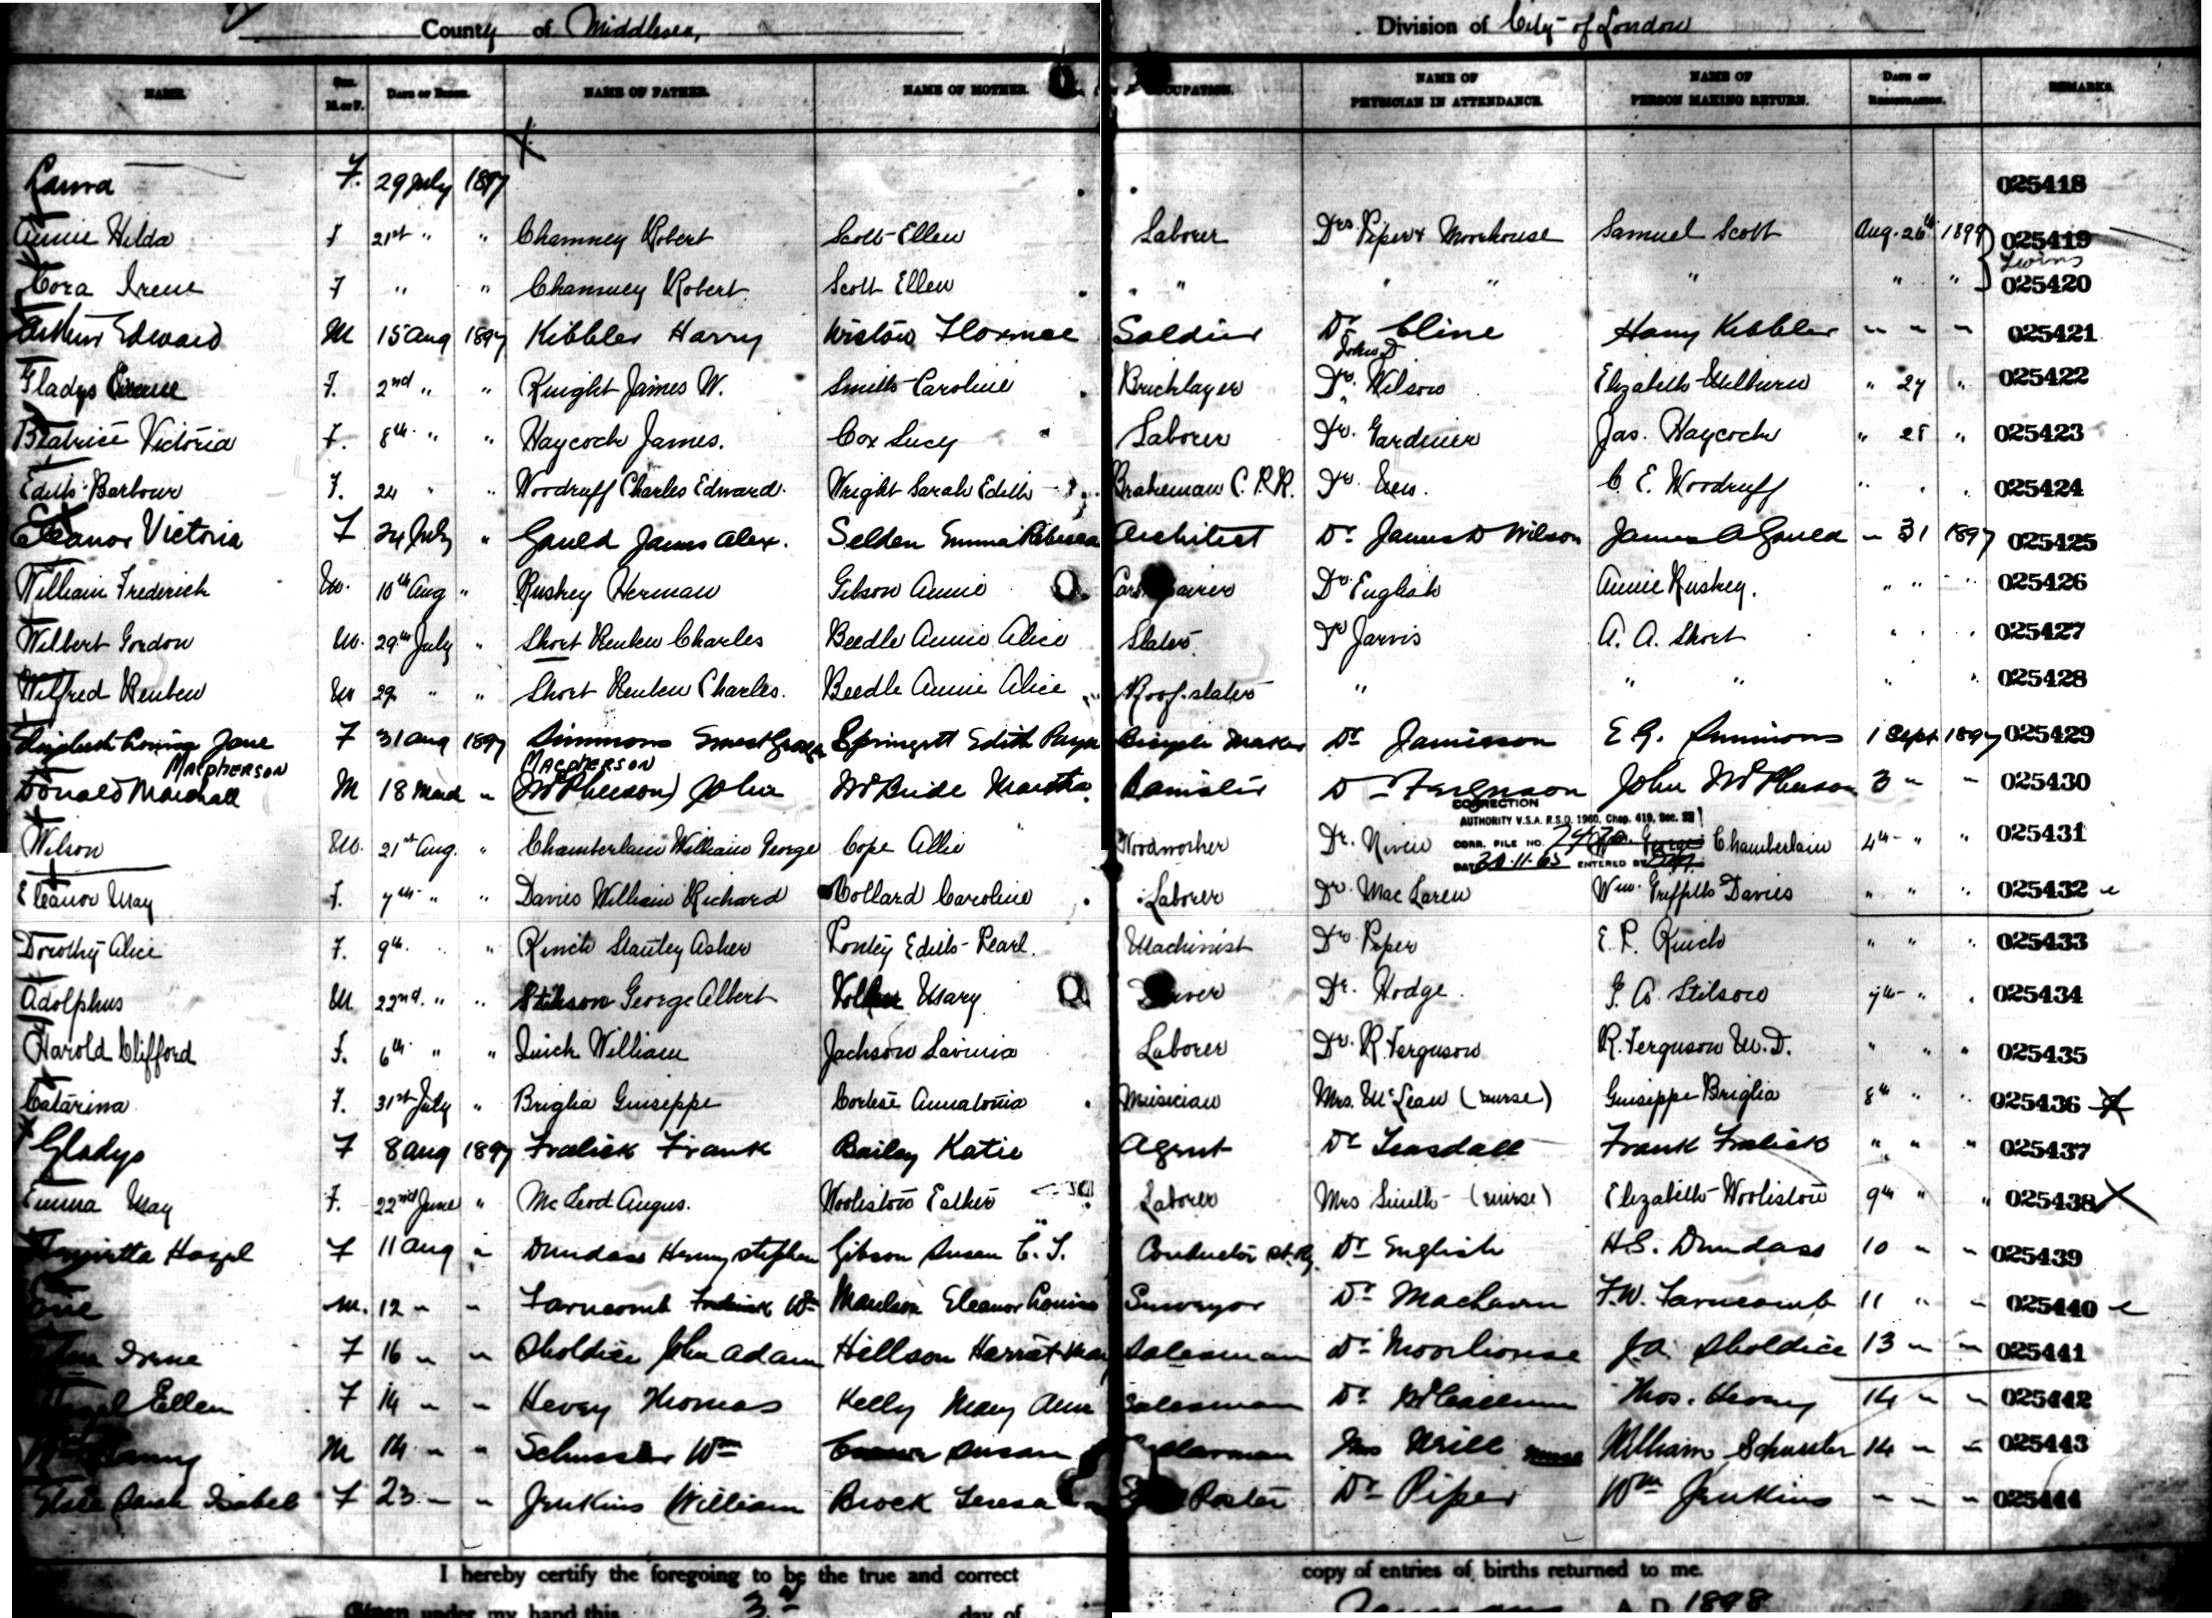 County of Middlesex, Division of City of London
NAME. Sex. M. or F. DATE OF BIRTH. NAME OF FATHER. NAME OF MOTHER. OCCUPATION. NAME OF PHYSICIAN IN ATTENDANCE. NAME OF PERSON MAKING RETURN. DATE OF REGISTRATION. REMARKS.
Laura F. 29 July 1897 025418
Annie Hilda F 21st " " Chamney Robert Scott Ellen Laborer Drs Piper & Moorhouse Samuel Scott Aug. 26th 1897 025419
Twins
Cora Irene F " " Chamney Robert Scott Ellen " " " " " " " 025420
Arthur Edward M 15 Aug 1897 Kibbler Harry Floxmee Soldier Dr Cline Harry Kibbler " " " 025421
Gladys F. 2nd " " Knight James W. Smith Caroline Bricklayer Dr. John D Wilson Elizabeth " 27 " 025422
Beatrice Victoria F. 8th " " Haycock James. Cox Lucy Laborer Dr. Gardiner Jas. Haycock " 28 " 025423
Edith Barbour F. 24 " " Woodruff Charles Edward. Wright Sarah Edith Brakeman C.P.R. Dr. C. E. Woodruff " " " 025424
Eleanor Victoria F 24 July " Gauld James Alex. Selden Emma Rebecca Architect Dr James D Wilson James A Gauld " 31 1897 025425
William Frederick M. 10th Aug " Ruskey Herman Gibson Annie Dr. English Annie Ruskey. " " " 025426
Wilbert Gordon M. 29th July " Short Reuben Charles Beedle Annie Alice Slater. Dr Jarvis A. A. Short " " " 025427
Wilfred Reuben M 29 " " Short Reuben Charles. Beedle Annie Alice Roof slater " " " " " 025428
Elizabeth Louisa Jane F 31 Aug 1897 Simmons Ernest George Springett Edith Bicycle Maker Dr Jamieson E. G. Simmons 1 Sept 1897 025429
MACPHERSON MACPHERSON
Donald Marshall M 18 March " (McPherson) John McBride Martha Barrister Dr Ferguson John McPherson 3 " " 025430
CORRECTION
AUTHORITY V.S.A. R.S.O. 1960, Chap. 419, Sec. 22
Wilson M. 21st Aug. " Chamberlain William George Cope Allie Woodworker Dr. Niven CORR. FILE NO. Wm. George Chamberlain 4th " " 025431
DATE 30-11-65 ENTERED BY
Eleanor May F. 7th " " Davies William Richard Collard Caroline Laborer Dr. MacLaren Wm. Griffiths Davies " " " 025432
Dorothy Alice F. 9th " " Kinch Stanley Asher Pontey Edith Pearl. Machinist Dr. Piper E. P. Kinch " " " 025433
Adolphus M. 22nd. " " Stilson George Albert Mary Dr. Hodge. G. A. Stilson 7th " " 025434
Harold Clifford F. 6th " " Quick William Jackson Lavinia Laborer Dr. R. Ferguson R. Ferguson M.D. " " " 025435
Catarina F. 31st July " Briglia Guiseppe Cortese Annatonia Musician Mrs. McLean (nurse) Guiseppe Briglia 8th " " 025436
Gladys F 8 Aug 1897 Fralick Frank Bailey Katie Agent Dr Teasdall Frank Fralick " " " 025437
Emma May F. 22nd June " McLeod Angus. Wooliston Esther Laborer Mrs Smith (nurse) Elizabeth Wooliston 9th " " 025438
Henrietta Hazel F 11 Aug " Dundass Henry Stephen Gibson Susan C. J. Conductor St. Ry. Dr English H.S. Dundass 10 " " 025439
M. 12 " " Farncomb Frederick Wm Eleanor Louisa Surveyor Dr MacLaren F.W. Farncomb 11 " " 025440
Irene F 16 " " Sholdice John Adam Hillson Harriet May Salesman Dr Moorhouse J.A. Sholdice 13 " " 025441
Hazel Ellen F 14 " " Hevey Thomas Kelly Mary Ann Salesman Dr McCallum Thos. Hevey 14 " " 025442
M 14 " " Schussler Wm Susan Mrs Neill nurse William Schussler 14 " " 025443
Elsie Sarah Isabel F 23 " " Jenkins William Brock Teresa Porter Dr Piper Wm Jenkins " " " 025444
I hereby certify the foregoing to be the true and correct copy of entries of births returned to me.
Given under my hand this 3rd day of A.D. 1898